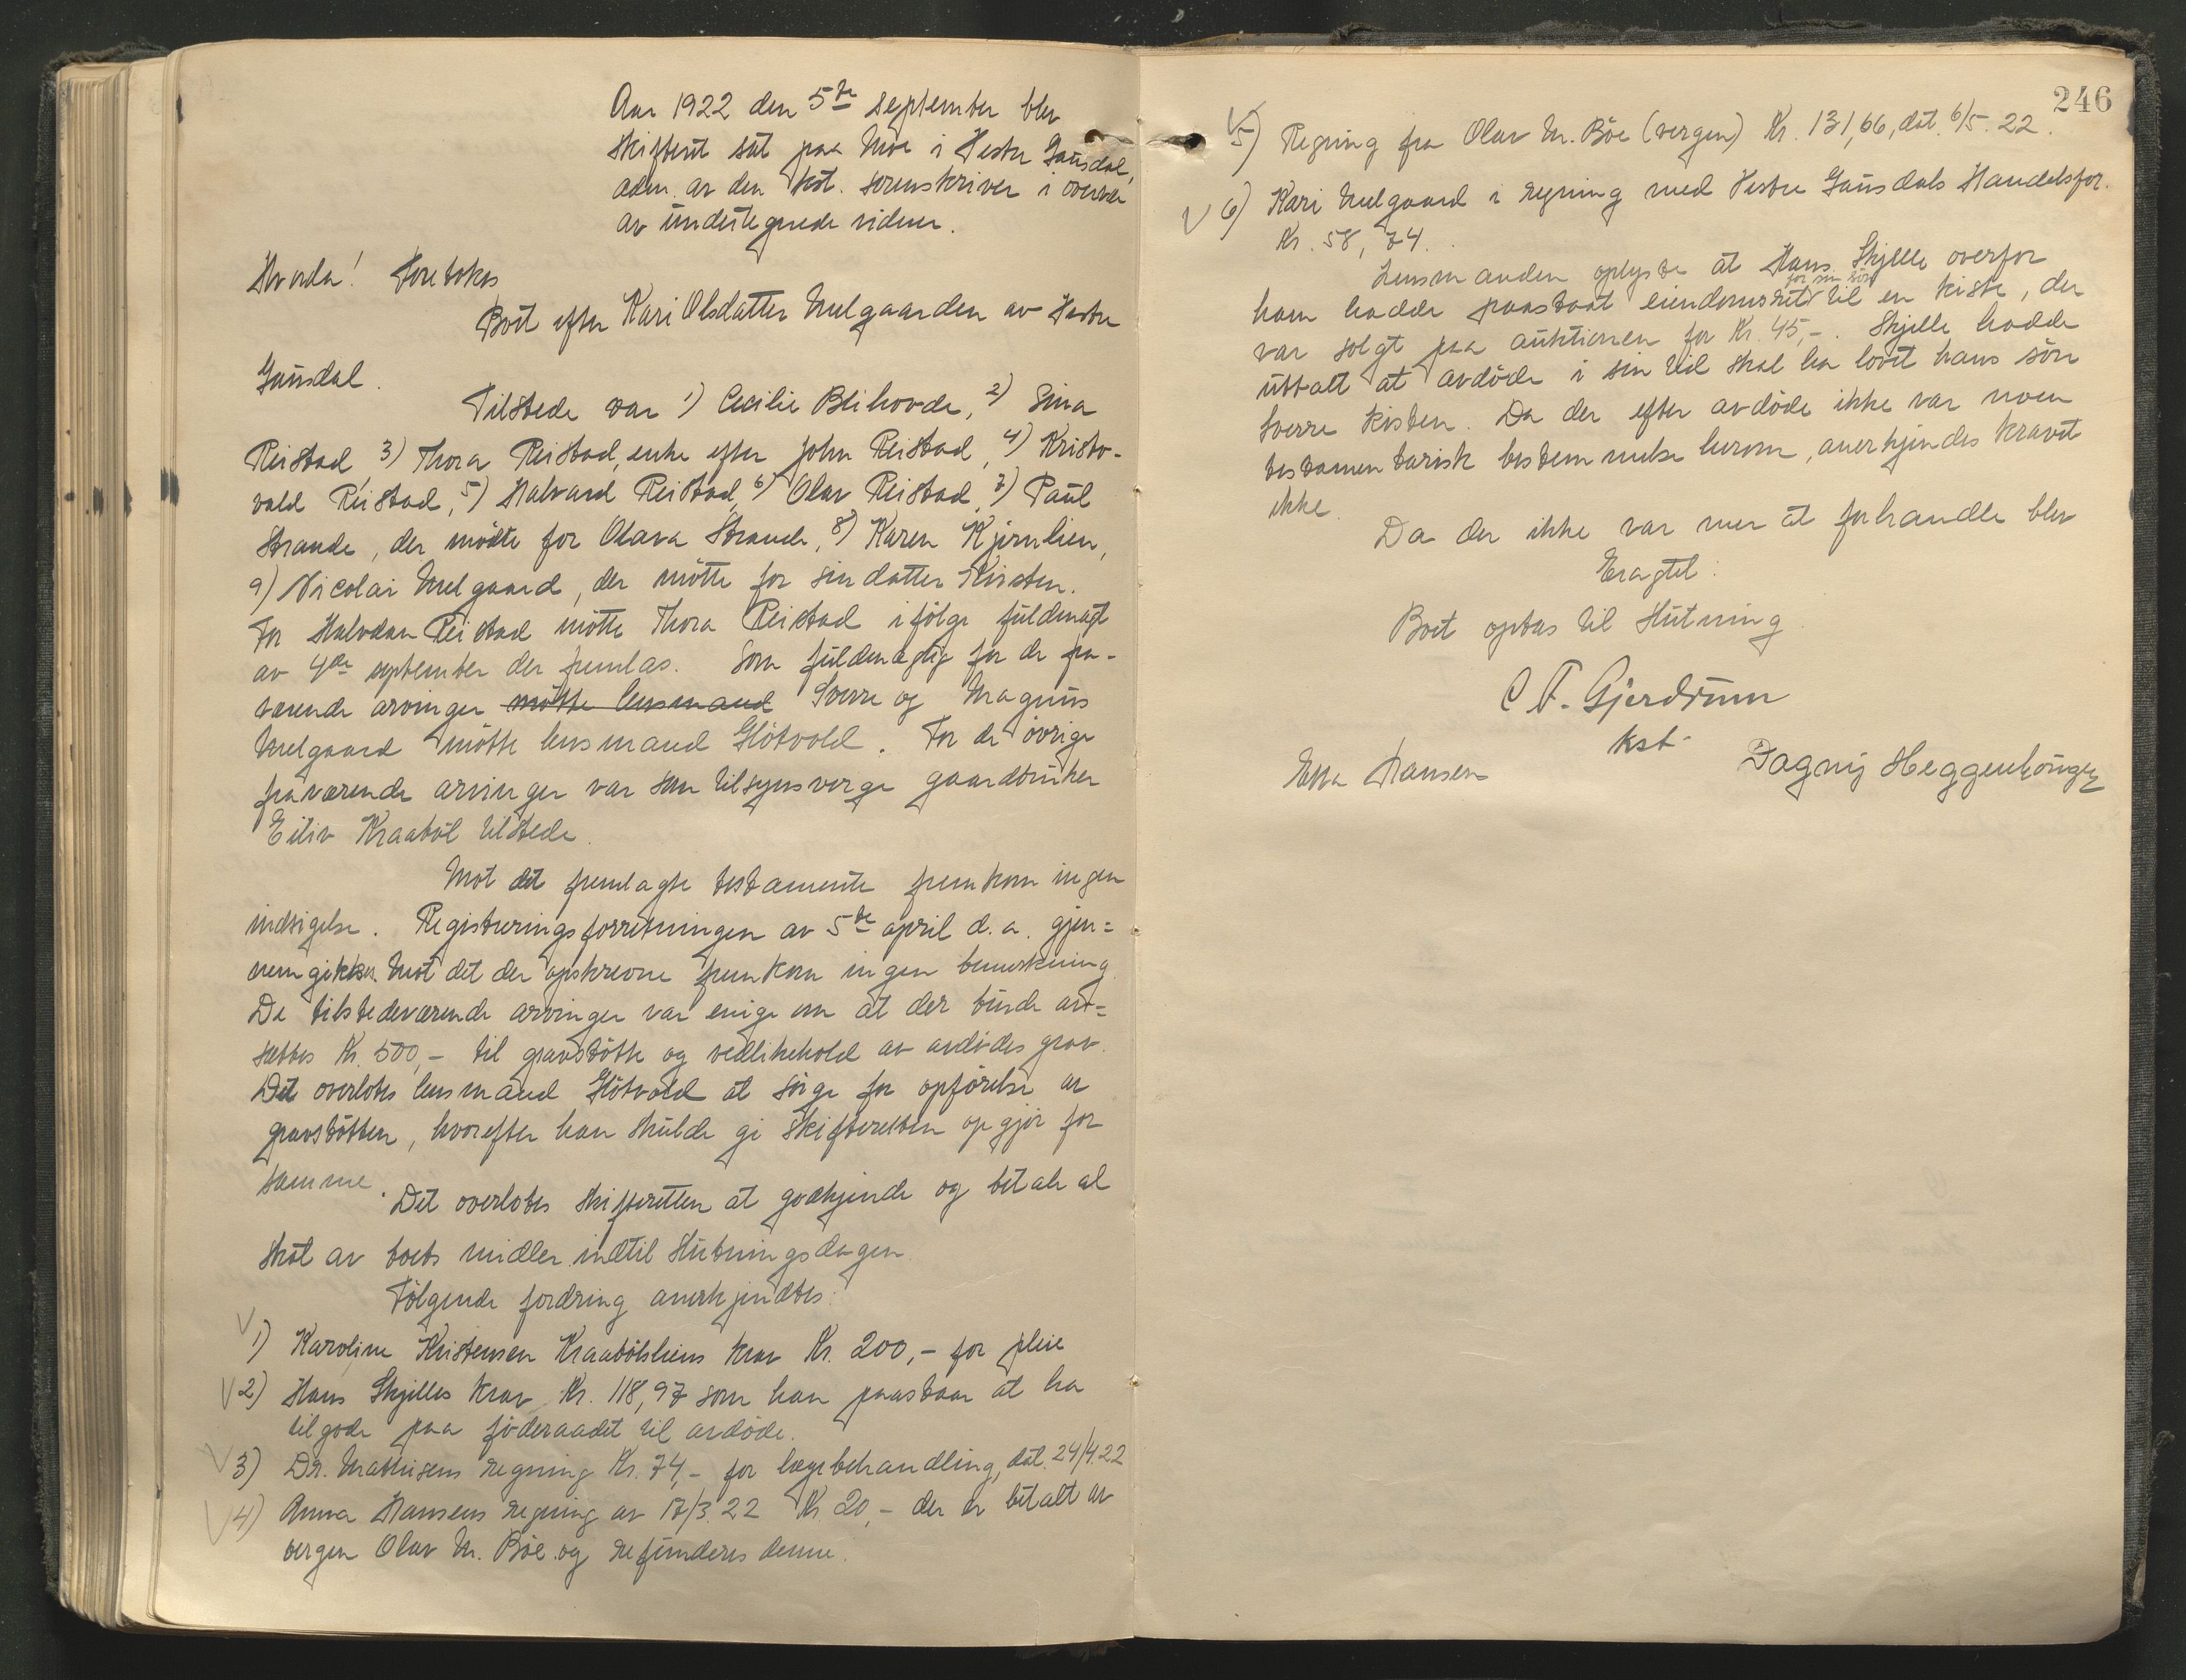 Aar 1922 den 5te september blev
skifteret sat paa Moe i Vestre Gausdal,
adm. av den kst. sorenskriver i overvær
av undertegnede vidner.
Hvorda! Foretokes
Boet efter Kari Olsdatter Melgaarden av Vestre
Gausdal.
Tilstede var 1) Cecilie Blihovde, 2) Sina
Reistad 3) Thora Reistad, enke efter John Reistad, 4) Kristo-
vald Reistad, 5) Halvard Reistad, 6) Olav Reistad, 7) Paul
Strande, der møtte for Olava Strande, 8) Karen Kjernlien,
9) Nicolai Melgaard, der møtte for sin datter Kirsten.
For Halvdan Reistad møtte Thora Reistad ifølge fuldmagt
av 4de september der fremlas. Som fuldmægtig for de fra-
værende arvinger møtte lensmand Sverre og Magnus
Melgaard møtte lensmand Fløtvold. For de øvrige
fraværende arvinger var som tilsynsverge gaardbruker
Eiliv Kraabøl tilstede.
Mot det fremlagte testamente fremkom ingen
indsigelse. Registreringsforretningen av 5te april d.a. gjen=
nemgikkes. Mot det der opskrevne fremkom ingen bemerkning.
De tilstedeværende arvinger var enige om at der burde av=
sættes Kr. 500,- til gravstøtte og vedlikehold av avdødes grav.
Det overlotes lensmand Fløtvold at sørge for opførelse av
gravstøtten, hvorefter han skulde gi skifteretten opgjør for
samme.
Det overlotes skifteretten at godkjende og betale al
skat av boets midler indtil slutningsdagen.
Følgende fordring anerkjendtes:
V 1) Karoline Kristensen Kraabølsliens krav Kr. 200,- for pleie
V 2) Hans Skjelles krav Kr. 118,97 som han paastaar at ha
tilgode paa føderaadet til avdøde.
V 3) Dr. Mathisens regning Kr. 74,- for lægebehandling, dat. 24/4.22
V 4) Anna Hansens regning av 17/3.22 Kr 20,- der er betalt av
vergen Olav M. Bøe og refunderes denne.
246
V 5) Regning fra Olav M. Bøe (vergen) Kr. 131,66, dat. 6/5. 22.
V 6) Kari Melgaard i regning med Vestre Gausdals Handelsfor.
Kr. 58,74.
Lensmanden oplyste at Hans Skjelle overfor
ham hadde paastaat eiendomsret for sin søn til en kiste, der
var solgt paa auktionen for Kr. 45,-. Skjelle hadde
uttalt at avdøde i sin tid skal ha lovet hans søn
Sverre kisten. Da der efter avdøde ikke var noen
testamentarisk bestemmelse herom, anerkjendes kravet
ikke.
Da der ikke var mer at forhandle blev
Eragtet:
Boet optas til slutning.
C F. Gjerdrum
kst.
Hansen
Dagny Heggenhougen